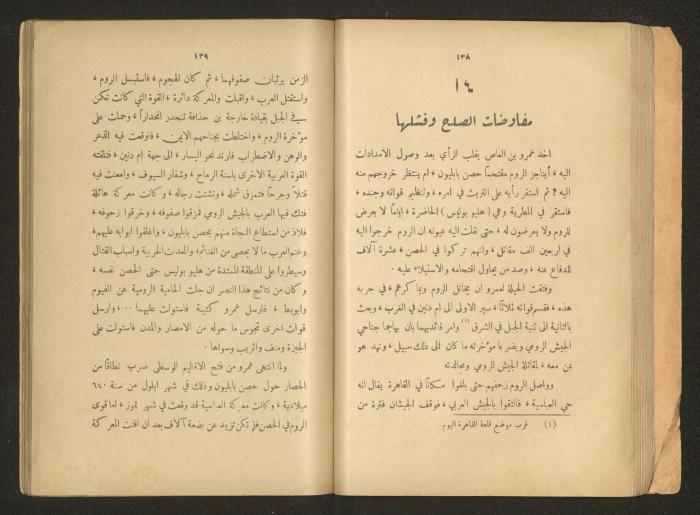 ١٣٨
١٦
مفاوضات الصلح وفشلها
اخذ عمرو بن العاص يقلب الرأي بعد وصول الامدادات
اليه ، أيناجز الروم مقتحماً حصن بابليون ، ام ينتظر خروجهم منه
اليه ? ثم استقر رأيه على التريث في امره ، وتنظيم قواته وجنده ،
فاستقر في المطرية وهي ( هليو بوليس ) الحاضرة ، اياماً لا يعرض
للروم ولا يعرضون له ، حتى نقلت اليه عيونه ان الروم خرجوا اليه
في اربعين الف مقاتل ، وانهم تركوا في الحصن ، عشرة آلاف
للدفاع عنه ، وصد من يحاول اقتحامه والاستيلاء عليه .
وفتقت الحيلة لعمرو ان يخاتل الروم ويماكرهم ، في حربه
هذه ، فقسم قواته ثلاثاً ، سير الاولى الى ام دنين في الغرب ، وبعث
بالثانية الى ثنية الجبل في الشرق (١) وامر قائديهما بان يهاجما جناحي
الجيش الرومي ويضربا مؤخرته ما كان الى ذلك سبيل ، ونهد هو
بمن معه ، لمقاتلة الجيش الرومي ومجالدته
وواصل الروم زحفهم حتى بلغوا مسكناً في القاهرة يقال انه
حي العباسية ، فالتقوا بالجيش العربي ، فوقف الجيشان فترة من
(١) قرب موضع قلعة القاهرة اليوم
١٣٩
الزمن يرتبان صفوفهما ، ثم كان الهجوم ، فاستبسل الروم ،
واستقتل العرب ، واقبلت والمعركة دائرة ، القوة التي كانت تكمن
في الجبل بقيادة خارجة بن حذافة تنحدر انحداراً ، وحملت على
مؤخرة الروم ، واختلطت بجناحهم الايمن ، فاوقعت فيه الذعر
والوهن والاضطراب فارتد نحو اليسار ، الى جهة ام دنين ، فتلقته
القوة العربية الاخرى باسنة الرماح ، وشفار السيوف ، وامعنت فيه
قتلاً وجرحاً فتمزق شمله ، وتشتت رجاله ، وكانت معركة هائلة
فتك فيها العرب بالجيش الرومي فمزقوا صفوفه ، وخرقوا زحوفه ،
فلاذ من استطاع النجاة منهم بحصن بابليون ، واغلقوا ابوابه عليهم ،
وغنم العرب ما لا يحصى من الغنائم ، والمعدات الحربية واسباب القتال
وسيطروا على المنطقة الممتدة من هليو بوليس حتى الحصن نفسه ،
وكان من نتائج هذا النصر ان جلت الحامية الرومية عن الفيوم
وابويط ، فارسل عمرو كتيبة فاستولت عليهما ٠٠ ، وارسل
قوات اخرى تجوس ما حوله من الامصار والمدن فاستولت على
الجيزة ومنف واثريب وسواها .
ولما انتهى عمرو من فتح الاقليم الوسطى ضرب نطاقاً من
الحصار حول حصن بابليون وذلك في شهر ايلول من سنة ٦٤٠
ميلادية ، وكانت معركة العباسية قد وقعت في شهر تموز ، اما قوى
الروم في الحصن فلم تكن تزيد عن بضعة آلاف بعد ان افنت المعركة